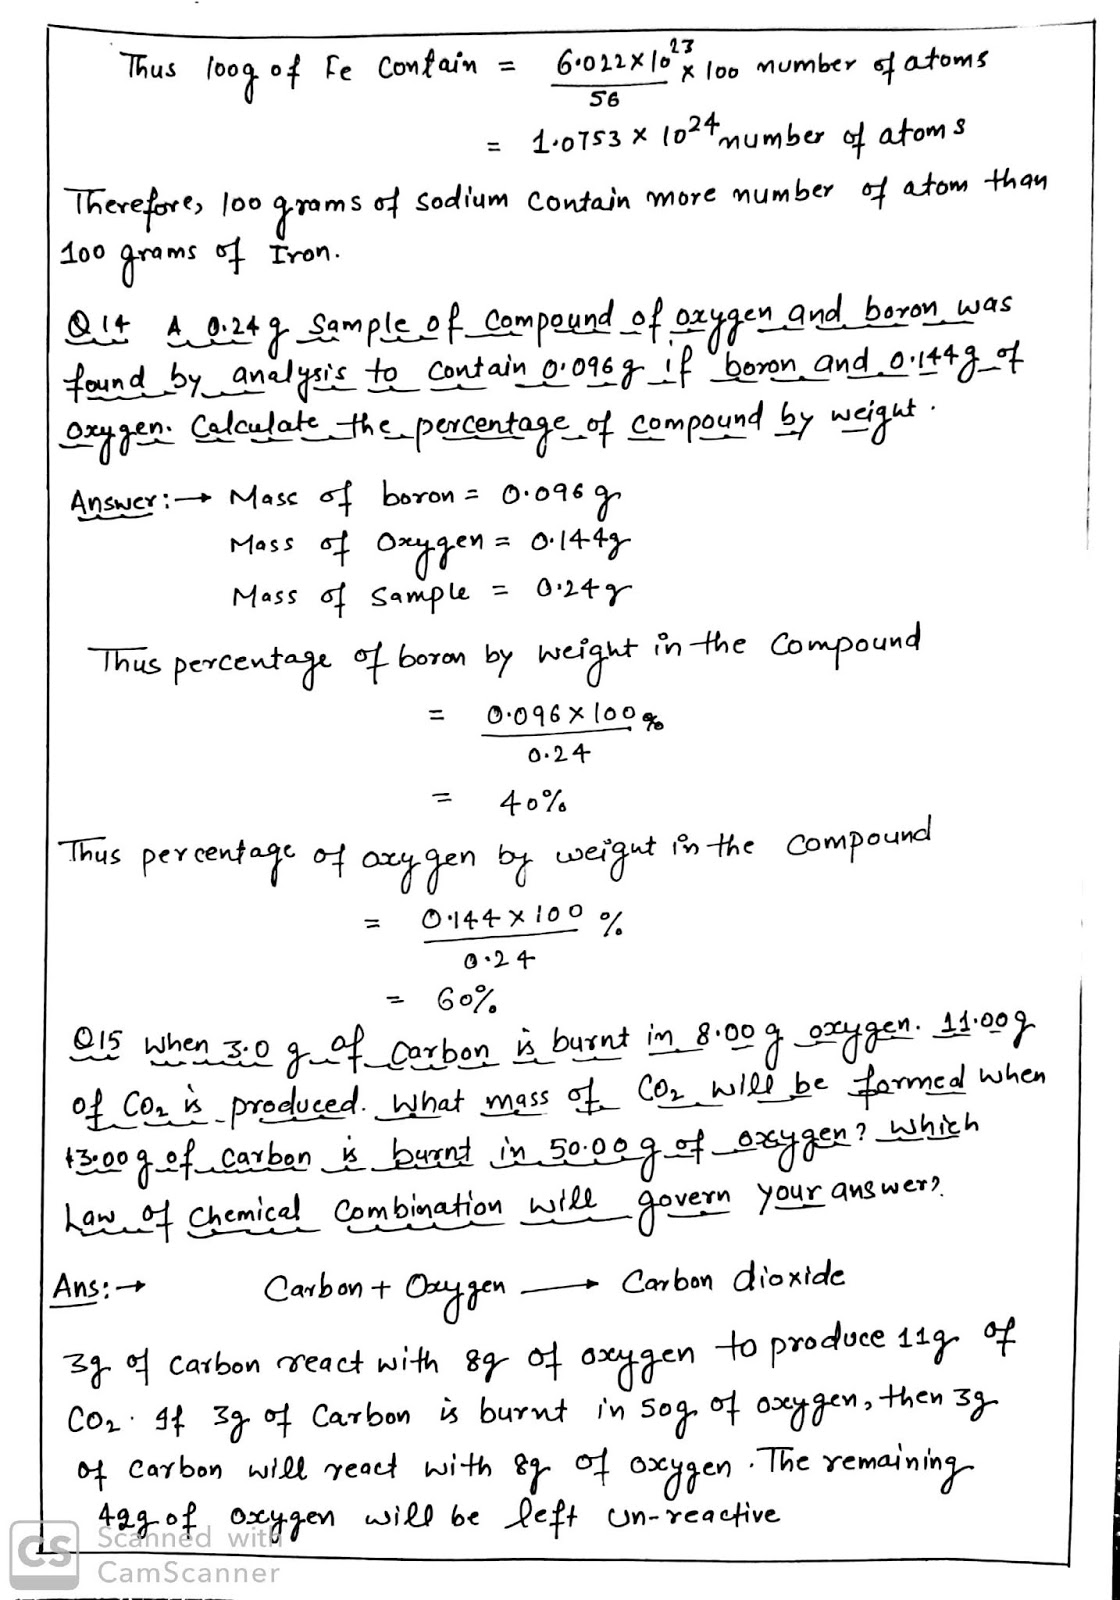 Thus 100g of Fe contain = 6.022×10²³/56 × 100 number of atoms
= 1.0753 × 10²⁴ number of atoms
Therefore, 100 grams of sodium contain more number of atom than
100 grams of Iron.
Q14 A 0.24 g sample of compound of oxygen and boron was
found by analysis to contain 0.096 g if boron and 0.144g of
oxygen. Calculate the percentage of compound by weight.
Answer:→ Mass of boron = 0.096 g
Mass of Oxygen = 0.144g
Mass of sample = 0.24g
Thus percentage of boron by weight in the compound
= 0.096 × 100 %
0.24
= 40%
Thus percentage of oxygen by weight in the compound
= 0.144 × 100 %
0.24
= 60%
Q15 When 3.0 g of Carbon is burnt in 8.00 g oxygen. 11.00g
of CO₂ is produced. What mass of CO₂ will be formed when
3.00 g of carbon is burnt in 50.00 g of oxygen? Which
Law of Chemical Combination will govern your answer?
Ans:→ Carbon + Oxygen ⟶ Carbon dioxide
3g of carbon react with 8g of oxygen to produce 11g of
CO₂. If 3g of Carbon is burnt in 50g of oxygen, then 3g
of carbon will react with 8g of oxygen. The remaining
42g of oxygen will be left un-reactive
CS Scanned with
CamScanner